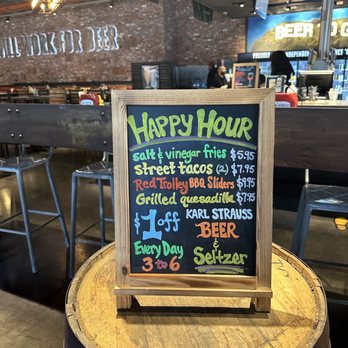 WILL WORK FOR BEER
BEER TO G
PROUDLY INDEPENDENT
HAPPY HOUR
salt & vinegar fries $5.95
street tacos (2) $7.95
Red Trolley BBQ Sliders $9.95
Grilled quesadilla $7.95
$1 off KARL STRAUSS
BEER
Every Day &
3 to 6 Seltzer